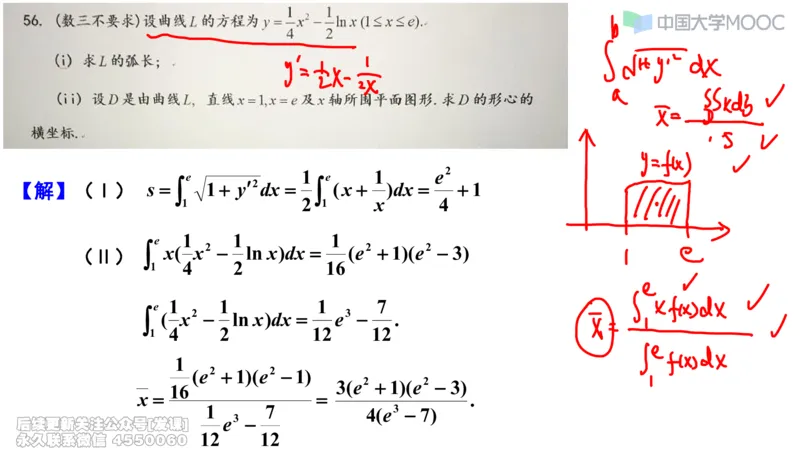 56. (数三不要求)设曲线 L 的方程为 y = 1/4 x² − 1/2 ln x (1 ≤ x ≤ e).
(i) 求 L 的弧长;
(ii) 设 D 是由曲线 L, 直线 x = 1, x = e 及 x 轴所围平面图形. 求 D 的形心的
横坐标.
y' = 1/2 x − 1/(2x)
中国大学MOOC
∫_a^b √(1+y'²) dx
x̄ = ∬_D x dσ / S
y = f(x)
1 e
x̄ = ∫_1^e x f(x) dx / ∫_1^e f(x) dx
【解】(Ⅰ) s = ∫_1^e √(1 + y'²) dx = 1/2 ∫_1^e (x + 1/x) dx = e²/4 + 1
(Ⅱ) ∫_1^e x(1/4 x² − 1/2 ln x) dx = 1/16 (e² + 1)(e² − 3)
∫_1^e (1/4 x² − 1/2 ln x) dx = 1/12 e³ − 7/12 .
x̄ = (1/16 (e² + 1)(e² − 1)) / (1/12 e³ − 7/12) = 3(e² + 1)(e² − 3) / 4(e³ − 7) .
后续更新关注公众号[发课]
永久联系微信 4550060